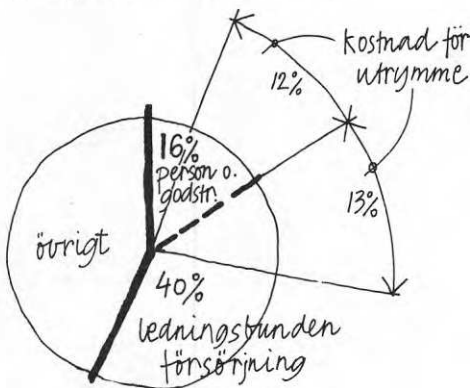 kostnad för
utrymme
12%
13%
16%
person o.
godstr.
övrigt
40%
ledningsbunden
försörjning